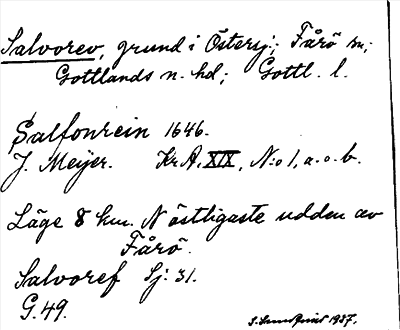 Salvorev, grund i Östersj.; Fårö sn;
Gottlands n. hd; Gottl. l.
Salfonrein 1646.
J. Meijer. Kr.A. XIX, N:o 1, a. o. b.
Läge 8 km. N östligaste udden av
Fårö.
Salvoref Sj: 31.
G. 49.
1937.